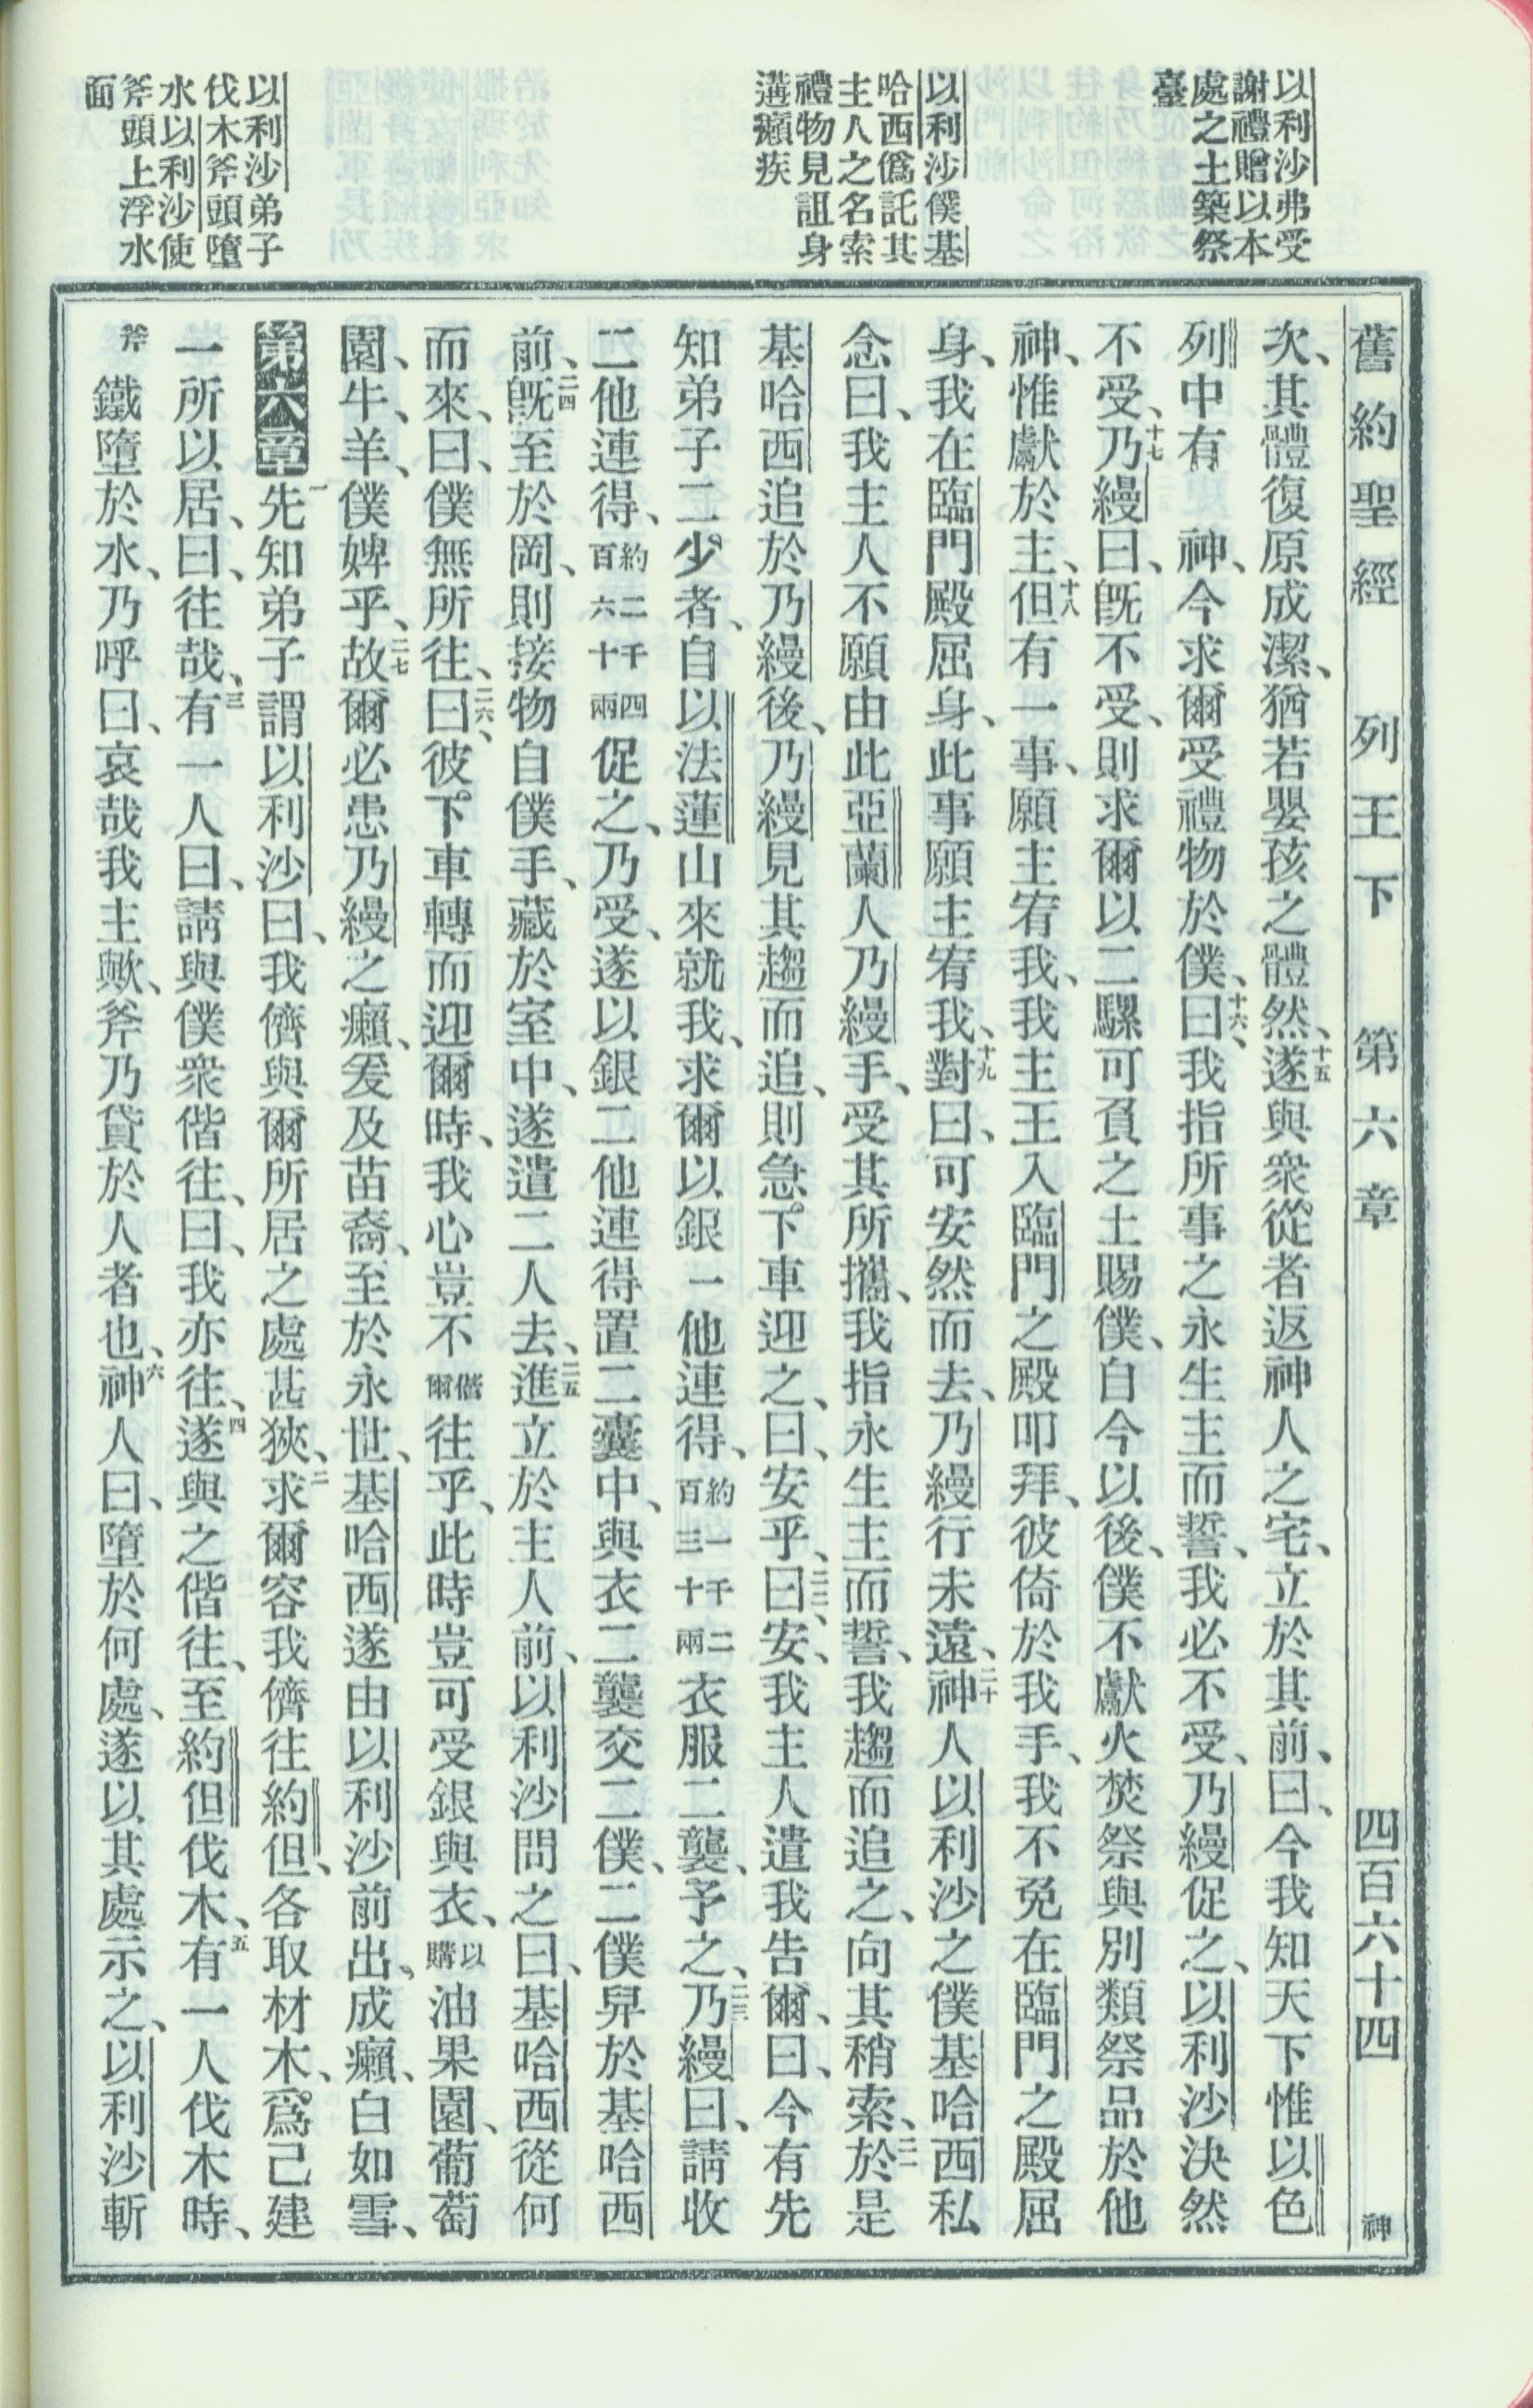 以利沙弗受
謝禮贈以本
處之土築祭
臺
以利沙僕基
哈西僞託其
主人之名索
禮物見詛身
遘癩疾
以利沙弟子
伐木斧頭墮
水以利沙使
斧頭上浮水
面
舊約聖經 列王下 第六章 四百六十四 神
次、其體復原成潔、猶若嬰孩之體然、十五遂與衆從者返神人之宅、立於其前、曰、今我知天下惟以色
列中有 神、今求爾受禮物於僕、十六曰、我指所事之永生主而誓、我必不受、乃縵促之、以利沙決然
不受、十七乃縵曰、旣不受、則求爾以二騾可負之土賜僕、自今以後、僕不獻火焚祭與別類祭品於他
神、惟獻於主、十八但有一事、願主宥我、我主王入臨門之殿叩拜、彼倚於我手、我不免在臨門之殿屈
身、我在臨門殿屈身、此事願主宥我、十九對曰、可安然而去、乃縵行未遠、二十神人以利沙之僕基哈西私
念曰、我主人不願由此亞蘭人乃縵手、受其所攜、我指永生主而誓、我趨而追之、向其稍索、二一於是
基哈西追於乃縵後、乃縵見其趨而追、則急下車迎之、曰、安乎、二二曰、安、我主人遣我告爾、曰、今有先
知弟子二少者、自以法蓮山來就我、求爾以銀一他連得、約一千二百三十兩衣服二襲、予之、二三乃縵曰、請收
二他連得、約二千四百六十兩促之、乃受、遂以銀二他連得置二囊中、與衣二襲交二僕、二僕舁於基哈西
前、二四旣至於岡、則接物自僕手、藏於室中、遂遣二人去、二五進立於主人前、以利沙問之曰、基哈西從何
而來、曰、僕無所往、二六曰、彼下車轉而迎爾時、我心豈不偕爾往乎、此時豈可受銀與衣、以購油果園、葡萄
園、牛、羊、僕婢乎、二七故爾必患乃縵之癩、爰及苗裔、至於永世、基哈西遂由以利沙前出、成癩、白如雪、
第六章一先知弟子謂以利沙曰、我儕與爾所居之處甚狹、二求爾容我儕往約但、各取材木、爲己建
一所以居、曰、往哉、三有一人曰、請與僕衆偕往、曰、我亦往、四遂與之偕往、至約但伐木、五有一人伐木時、
斧鐵墮於水、乃呼曰、哀哉我主歟、斧乃貸於人者也、六神人曰、墮於何處、遂以其處示之、以利沙斬